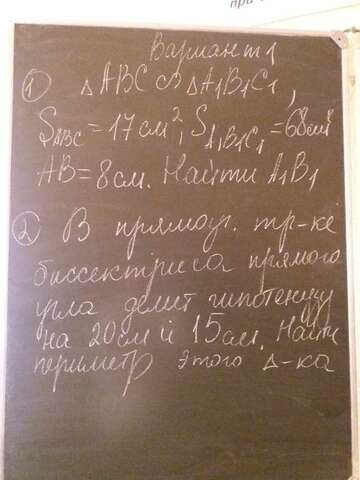 при
Вариант 1
① △ABC ∾ △A₁B₁C₁,
S_ABC = 17 см², S_A₁B₁C₁ = 68 см²
AB = 8 см. Найти A₁B₁
② В прямоуг. тр-ке
биссектриса прямого
угла делит гипотенузу
на 20 см и 15 см. Найти
периметр этого △-ка